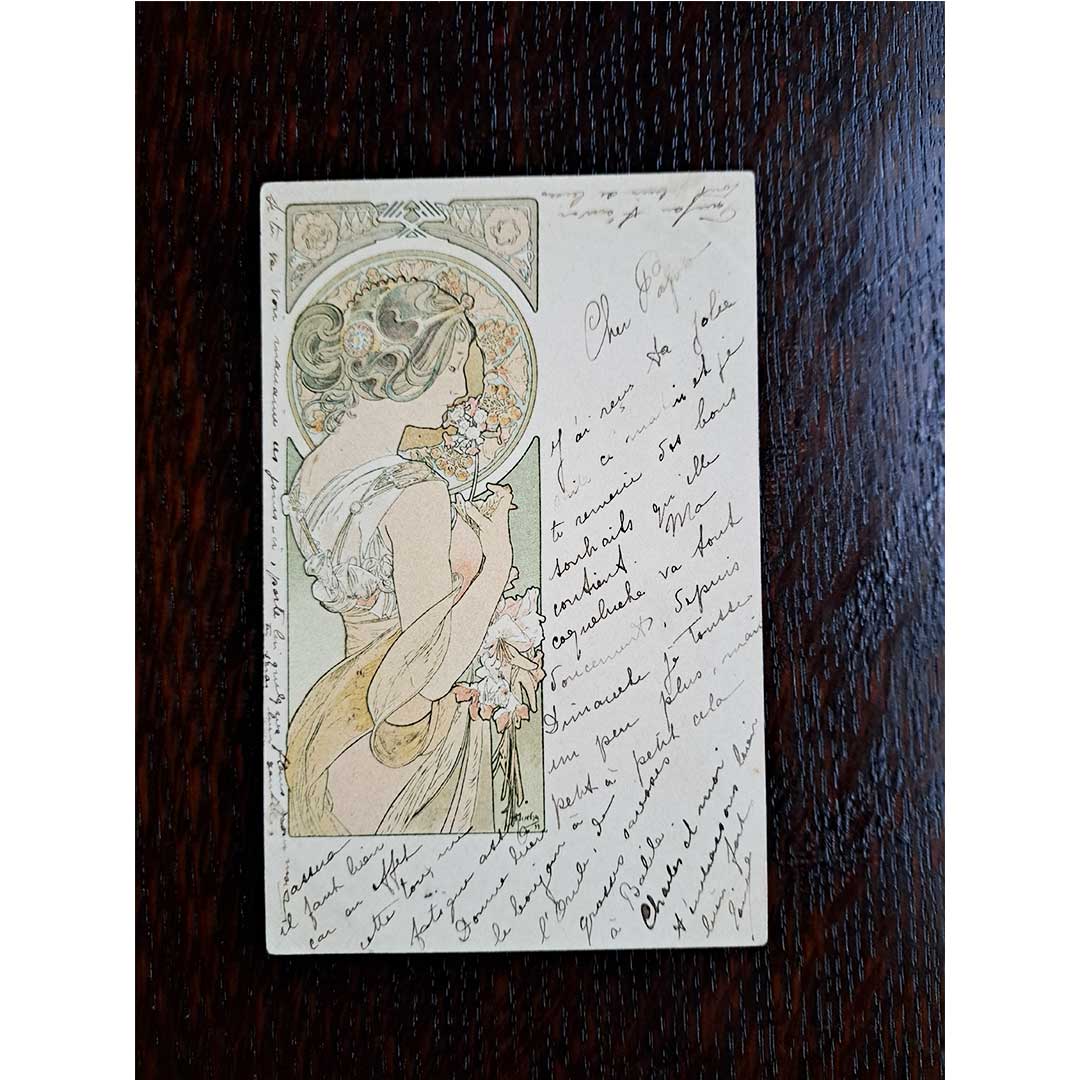 Cher Papa
J'ai reçu ta jolie
ce matin et je
te remercie des bons
souhaits qu'elle
contient. Ma
coqueluche va tout
doucement, depuis
Dimanche je tousse
un peu plus, mais
petit à petit cela
passera
il faut bien
car en effet
cette toux, me
fatigue
Donne bien
le bonjour à
l'Oncle, de
grosses caresses
à
Charles et moi
t'embrassons bien
bien fort
Si tu va voir ces jours-ci, porte lui quelque
Mucha